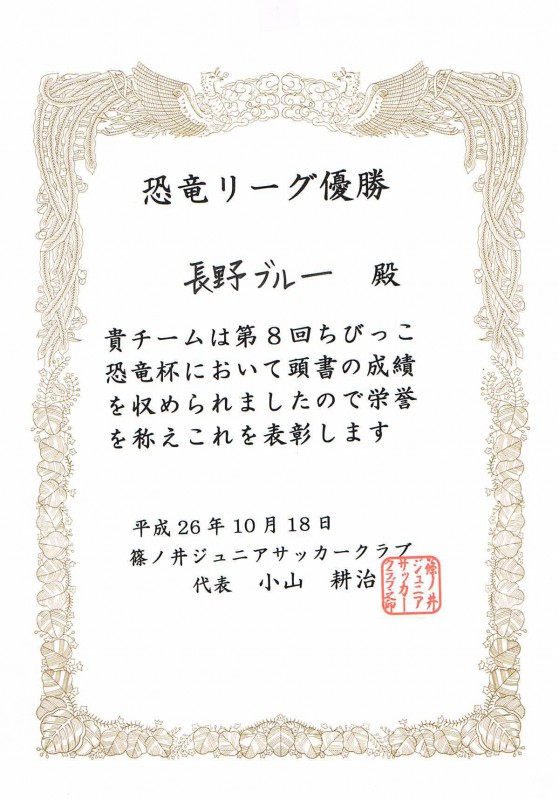 恐竜リーグ優勝
長野ブルー 殿
貴チームは第8回ちびっこ
恐竜杯において頭書の成績
を収められましたので栄誉
を称えこれを表彰します
平成26年10月18日
篠ノ井ジュニアサッカークラブ
代表 小山 耕治
篠ノ井
ジュニア
サッカー
クラブ之印